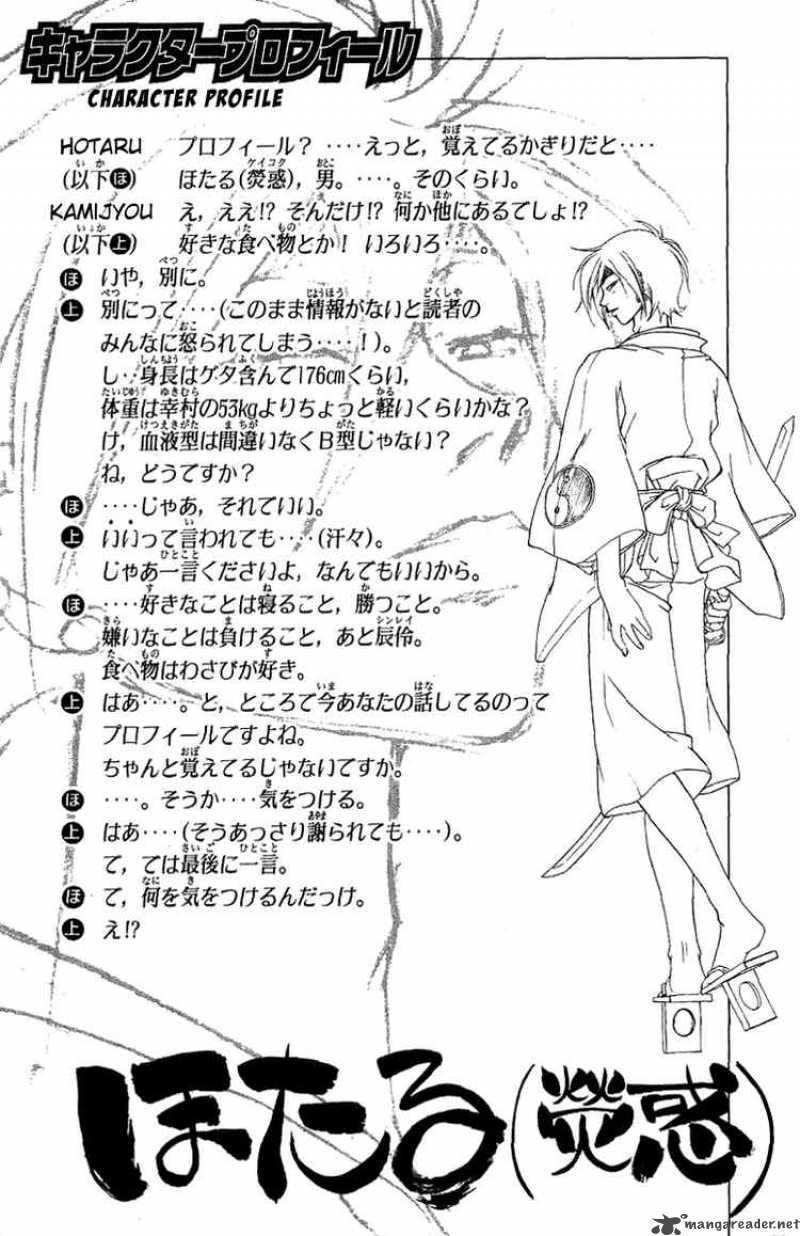 キャラクタープロフィール
CHARACTER PROFILE
HOTARU プロフィール？ ‥‥えっと，覚えてるかぎりだと‥‥
(以下ほ) ほたる(熒惑)，男。‥‥。そのくらい。
KAMIJYOU え，ええ!? そんだけ!? 何か他にあるでしょ!?
(以下上) 好きな食べ物とか！ いろいろ‥‥。
ほ いや，別に。
上 別にって‥‥(このまま情報がないと読者の
みんなに怒られてしまう‥‥！)。
し‥身長はゲタ含んで176cmくらい，
体重は幸村の53kgよりちょっと軽いくらいかな？
け，血液型は間違いなくB型じゃない？
ね，どうですか？
ほ ‥‥じゃあ，それでいい。
上 いいって言われても‥‥(汗々)。
じゃあ一言くださいよ，なんでもいいから。
ほ ‥‥好きなことは寝ること，勝つこと。
嫌いなことは負けること，あと辰伶。
食べ物はわさびが好き。
上 はあ‥‥。と，ところで今あなたの話してるのって
プロフィールですよね。
ちゃんと覚えてるじゃないですか。
ほ ‥‥。そうか‥‥気をつける。
上 はあ‥‥(そうあっさり謝られても‥‥)。
て，では最後に一言。
ほ て，何を気をつけるんだっけ。
上 え!?
ほたる(熒惑)
mangareader.net